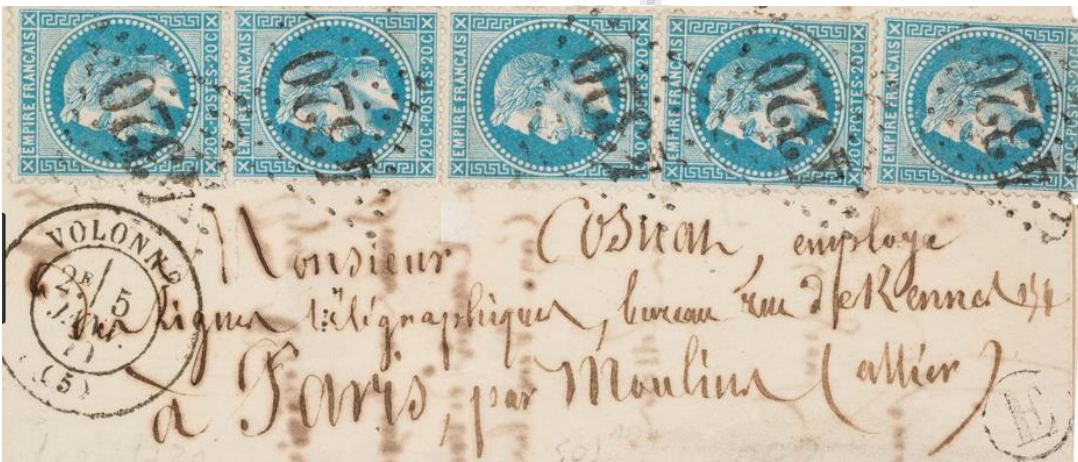 EMPIRE FRANCAIS 20C-POSTES-20C EMPIRE FRANCAIS 20C-POSTES-20C EMPIRE FRANCAIS 20C-POSTES-20C EMPIRE FRANCAIS 20C-POSTES-20C EMPIRE FRANCAIS
4320 4320 4320 4320 4320
VOLONNE
2E 5
JANV.
71
(5)
Monsieur Cosnan, employé
des lignes télégraphiques, bureau rue de Rennes 154
à Paris, par Moulins (allier)